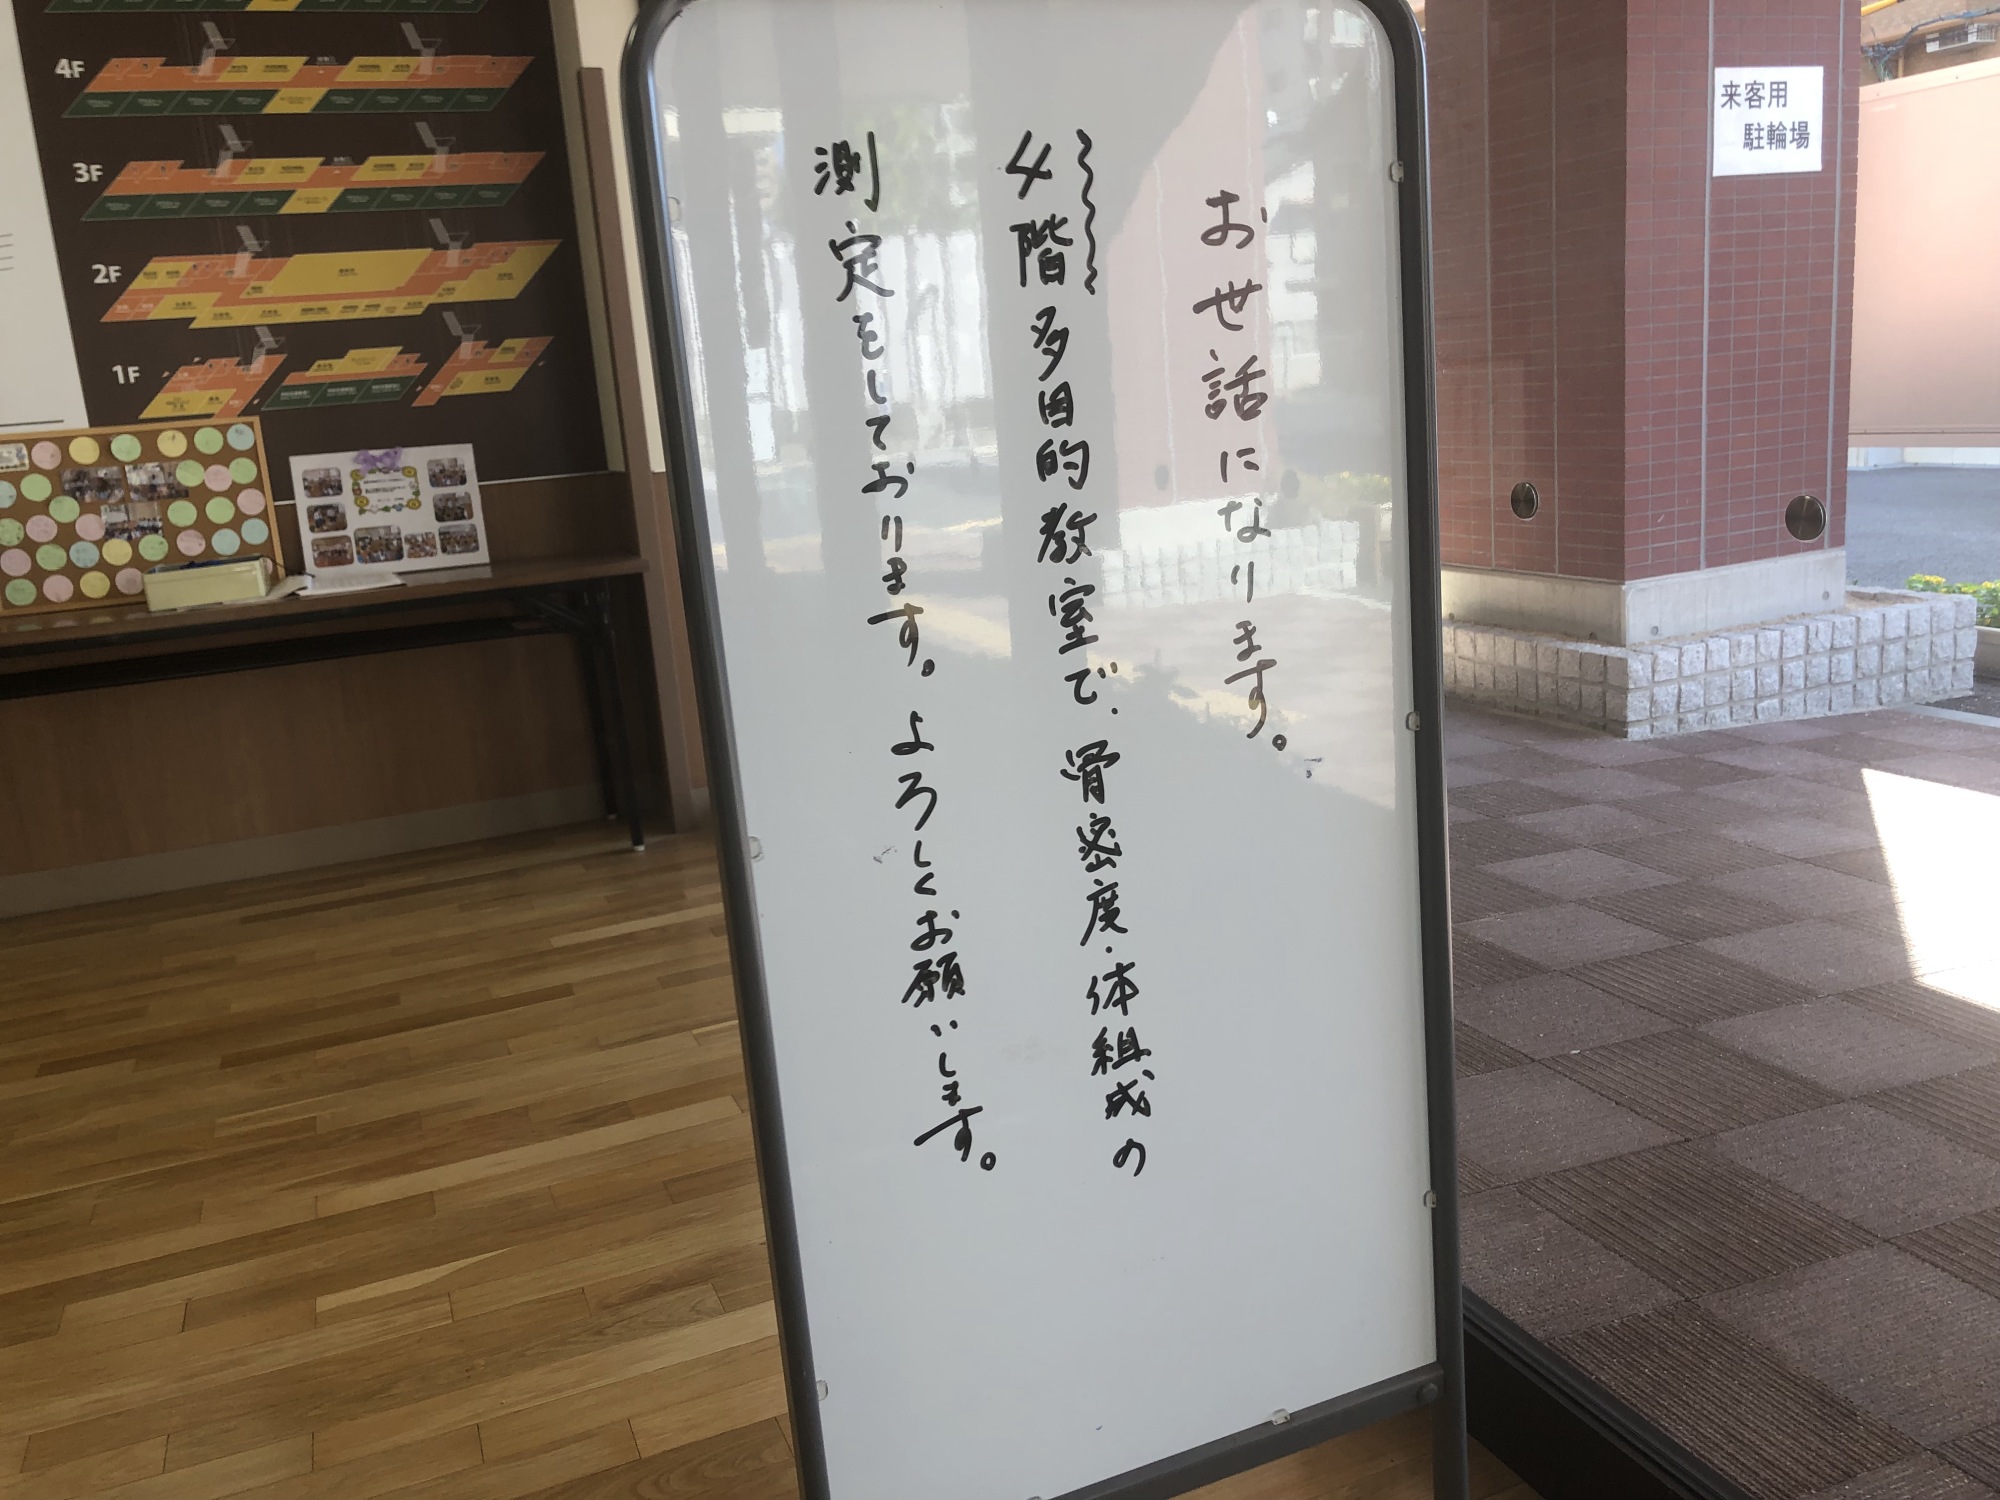 お世話になります。
4階多目的教室で、骨密度・体組成の
測定をしております。よろしくお願いします。
来客用
駐輪場
4F
3F
2F
1F